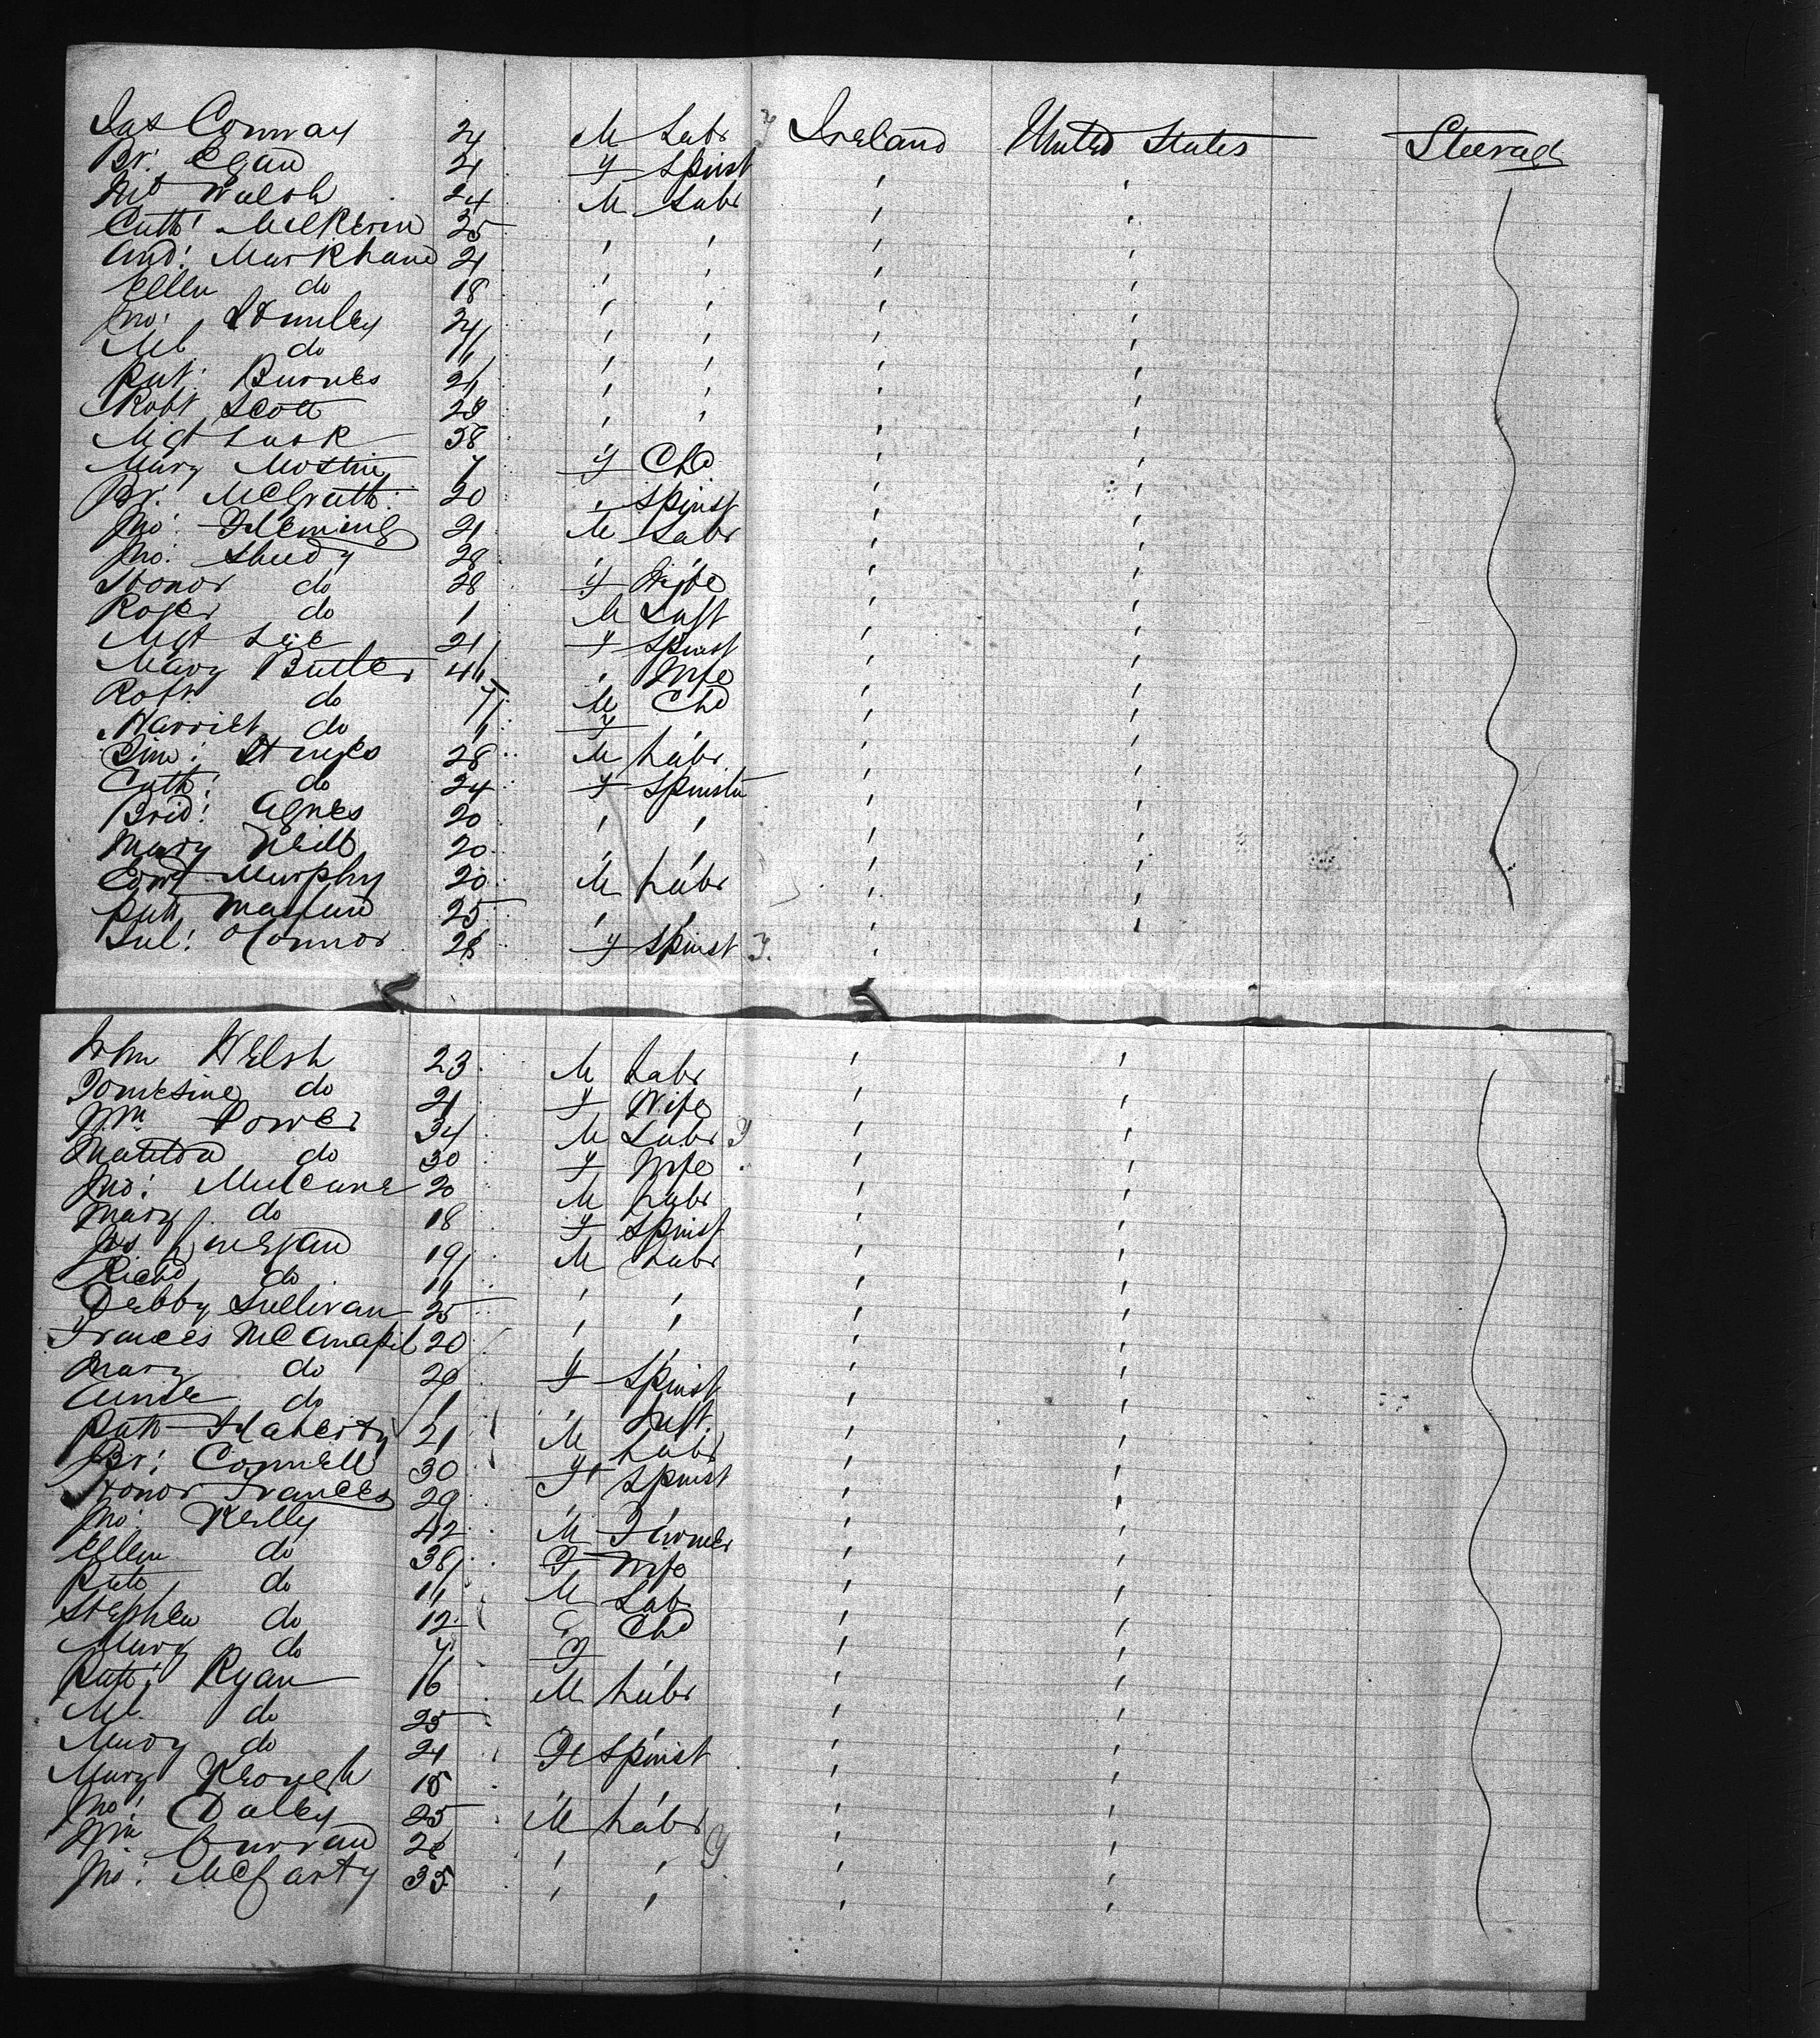 Jas Conway 24 M Labr Ireland United States Steerage
Br: Egan 21 F Spinst
Mt Walsh 24 M Labr
Cath: 25 " "
And: Markham 21 " "
Ellen do 18 " "
Jno: 24 " "
Ml do 11 " "
Pat: Burnes 21 " "
Robt Scott 28 " "
Mgt Lusk 38
Mary 7 F Chd
Br. McGrath 20 " Spinst
Jno: Fleming 21 M Labr
Jno: Sheedy 28 " "
Honor do 28 F Wife
Roger do 1 M Inft
Mgt Lee 21 F Spinst
Mary Butler 44 " Wife
Robt. do 7 M Chd
Harriet do F
Jim: 28 M Labr
Cath: do 24 F Spinster
Brid: Agnes 20 " "
Mary Neill 20 " "
Edwd Murphy 20 M Labr
Patk 25 " "
Jul: O'Connor 28 F Spinst
John Welsh 23 M Labr
Tomesine do 21 F Wife
Wm Power 34 M Labr
Matilda do 30 F Wife
Jno: Mulcane 20 M Labr
Mary do 18 F Spinst
Jas. Finegan 19 M Labr
Richd do 11 " "
Debby Sullivan 25 " "
Frances 20 " "
Mary do 20 F Spinst
Annie do 1 " Inft.
Patk Flaherty 21 M Labr
Br: Connell 30 F Spinst
Honor Frances 29
Jno: Kelly 42 M Farmer
Ellen do 38 F Wife
Patk do 11 M Labr
Stephen do 12 Chd
Mary do F
Patk: Ryan 16 M Labr
Ml. do 25 " "
Mary do 21 F Spinst
Mary Keough 18
Jno: Dalley 25 M Labr
Wm Curran 28 " "
Jno: McCarty 35 " "